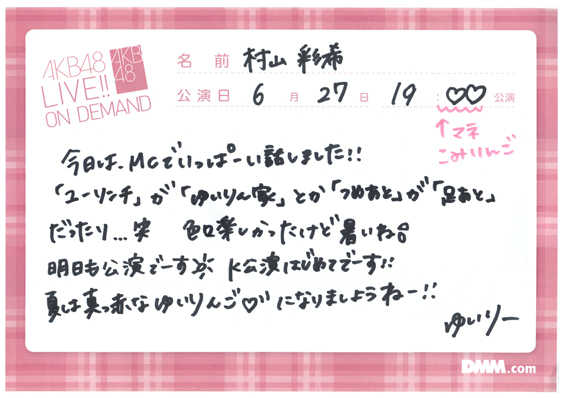 AKB48
LIVE!!
ON DEMAND
AKB
48
名前 村山 彩希
公演日 6月27日 19:♡♡公演
↑マネ
こみりんご
今日は、MCでいっぱーい話しました!!
「ユーリンチ」が「ゆいりん家」とか「つめあと」が「足あと」
だったり...笑 楽しかったけど暑いね。
明日も公演でーす K公演はじめてでーす!!
夏は真っ赤なゆいりんご♡になりましょうねー!!
ゆいりー
DMM.com